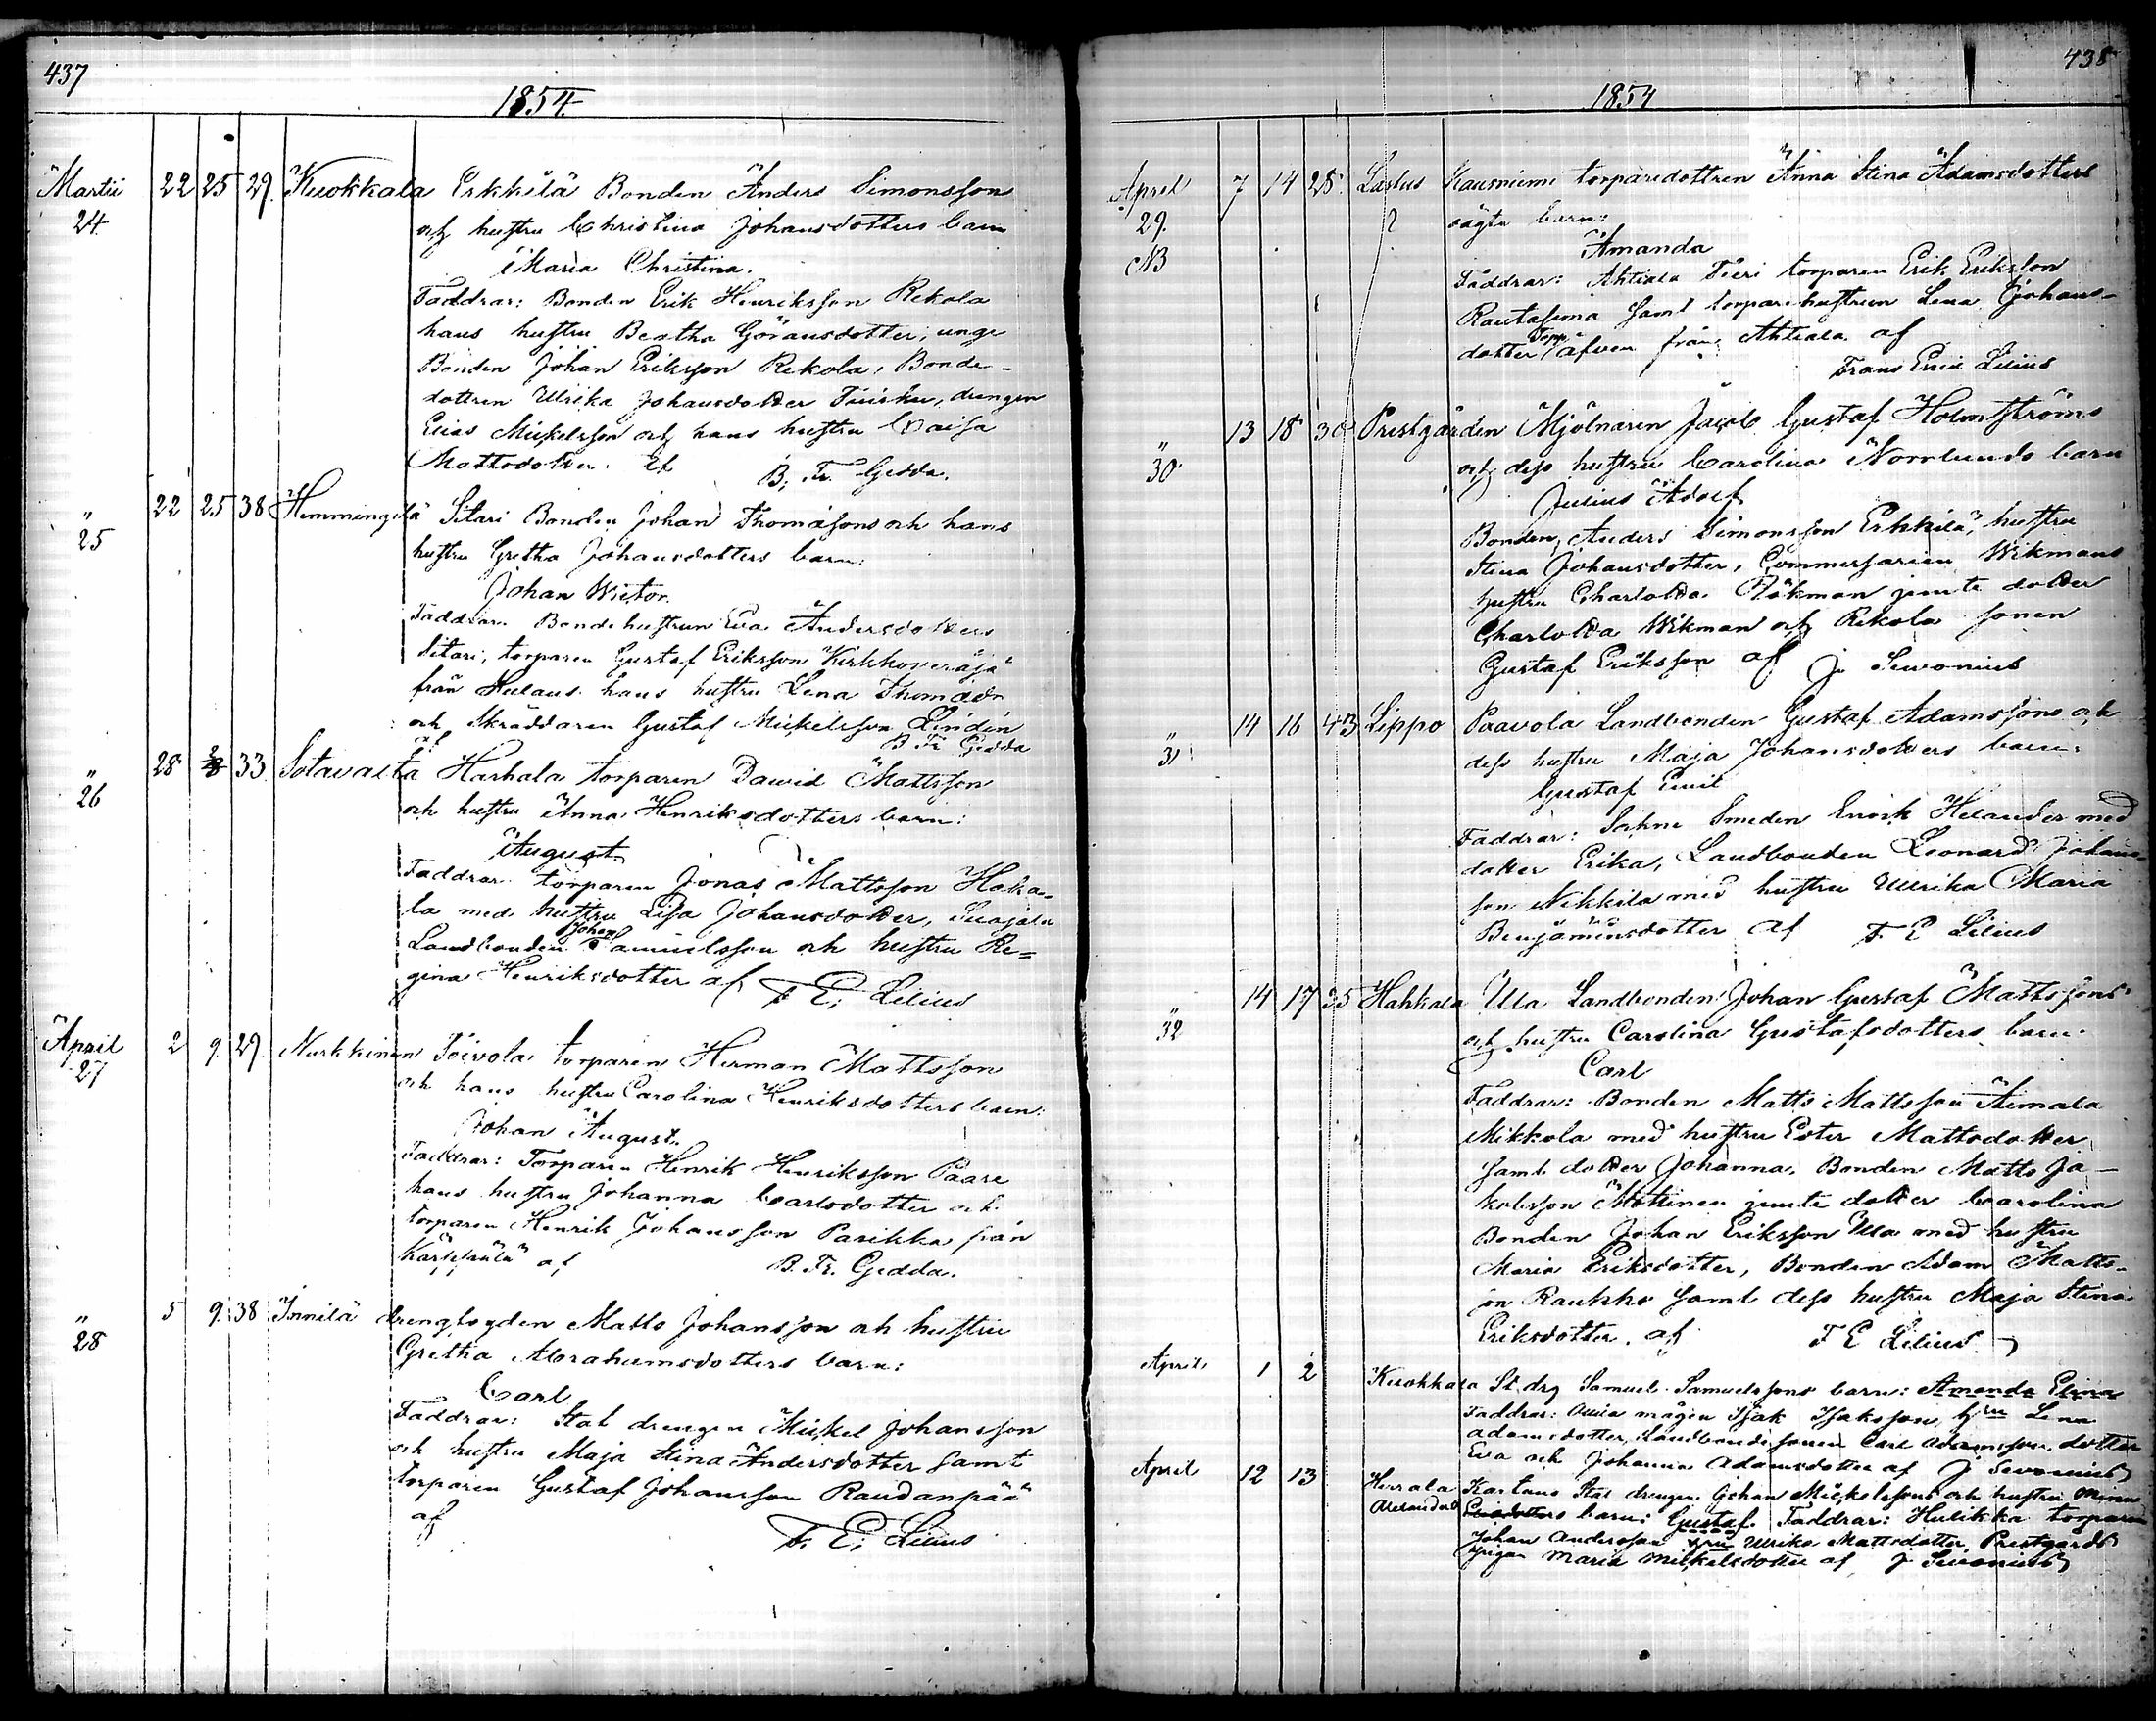 437
1854
Martii 22 25 29. Kuokkala Erkkilä Bonden Anders Simonsson
24. och hustru Christina Johansdotters barn
Maria Christina.
Faddrar: Bonden Erik Henriksson Rekola
hans hustru Beatha Göransdotter, unge
Bonden Johan Eriksson Rekola, Bonde-
dottren Ulrika Johansdotter, drengen
Elias Mickelsson och hans hustru Caisa
Mattsdotter. af B. Fr. Gedda.
" 22 25 38 Hemmingilä Sitari Bonden Johan Thomassons och hans
25 hustru Gretha Johansdotters barn:
Johan Wictor.
Faddrar. Bondehustrun Eva Andersdotter
Sitari, torparen Gustaf Eriksson
från hans hustru Lena Thomasdr
och Skräddaren Gustaf Mickelsson Lindén
af B Fr Gedda
" 28 33. Sotavalta Harhala torparen David Mattsson
26 och hustru Anna Henriksdotters barn:
August.
Faddrar. torparen Jonas Mattsson Haka-
la med hustru Lisa Johansdotter, Suajala
Landbonden Johan Samuelsson och hustru Re=
gina Henriksdotter af F. E. Lilius
April 2 9. 29. Nurkkinen Toivola torparen Herman Mattsson
27 och hans hustru Carolina Henriksdotters barn:
Johan August.
Faddrar: Torparen Henrik Henriksson Paare
hans hustru Johanna Carlsdotter och
torparen Henrik Johansson Parikka från
Kärkkälä af B. Fr. Gedda.
" 5 9. 38 Innilä drengkogden Matts Johansson och hustru
28 Gretha Abrahamsdotters barn:
Carl
Faddrar: Stat drengen Mickel Johansson
och hustru Maja Stina Andersdotter samt
torparen Gustaf Johansson Raudanpää
af F. E. Lilius
438
1854
April 7 14 28. Lastus Kausniemi torparedottren Anna Stina Adamsdotters
29. oägta barn:
NB Amanda
Faddrar: Ahtiala torparen Erik Eriksson
Rautasuma samt torparehustrun Lena Johans-
dotter Topp äfven från Ahtiala. af
Frans Eric Lilius
" 13 18 30 Prestgården Mjölnaren Jacob Gustaf Holmströms
30 och dess hustru Carolina Norrlunds barn
Julius Adolf
Bonden Anders Simonsson Erkkilä, hustru
Stina Johansdotter, Commissarien Wikmans
hustru Charlotta Åkman jemte dotter
Charlotta Wikman och Rekola sonen
Gustaf Eriksson af J. Sevonius
" 14 16 43 Lippo Paavola Landbonden Gustaf Adamssons och
31. dess hustru Maja Johansdotters barn:
Gustaf Emil
Faddrar: Smeden Enock Helander med
dotter Erika, Landbonden Leonard Johans-
son Nikkilä med hustru Ulrika Maria
Benjaminsdotter af F. E Lilius
" 14 17 35 Hahkala Ulla Landbonden Johan Gustaf Mattssons
32 och hustru Carolina Gustafsdotters barn.
Carl
Faddrar: Bonden Matts Mattsson Aimala
Mikkola med hustru Ester Mattsdotter
samt dotter Johanna. Bonden Matts Ja-
kobsson Mottinen jemte dotter Carolina
Bonden Johan Eriksson Ulla med hustru
Maria Eriksdotter, Bonden Adam Matts-
son Raukko samt dess hustru Maja Stina
Eriksdotter. af F E Lilius.
April 1 2 Kuokkala St. drg Samuel Samuelssons barn: Amanda Elina
Faddrar: Ollila mågen Isak Isaksson, hru Lena
Adamsdotter, Landbondesonen Carl Adamsson, dotter
Eva och Johanna Adamsdotter af J. Sevonius
April 12 13 Herrala Kartano Stat drengen Johan Mickelssons och hustru Minna
Alexandersd. barn: Gustaf. Faddrar: Hulikka torparen
Johan Andersson hru Ulrika Mattsdotter, Prestgårds
pigan Maria Mickelsdotter af J. Sevonius